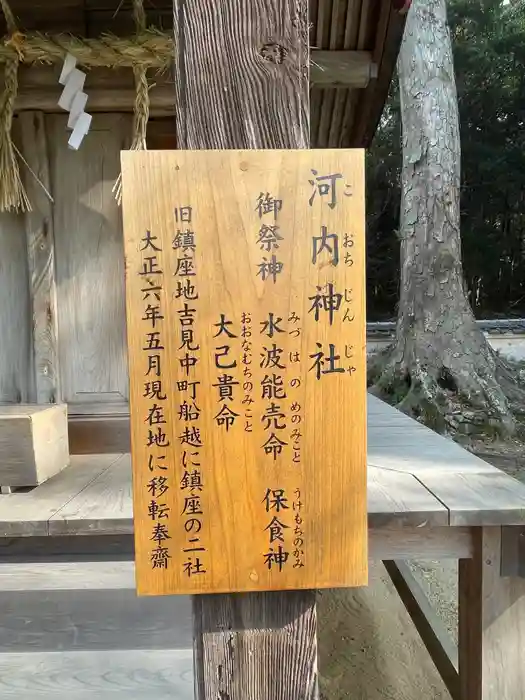 河内神社
こおちじんじゃ
御祭神 水波能売命 保食神
みづはのめのみこと うけもちのかみ
大己貴命
おおなむちのみこと
旧鎮座地吉見中町船越に鎮座の二社
大正六年五月現在地に移転奉齋